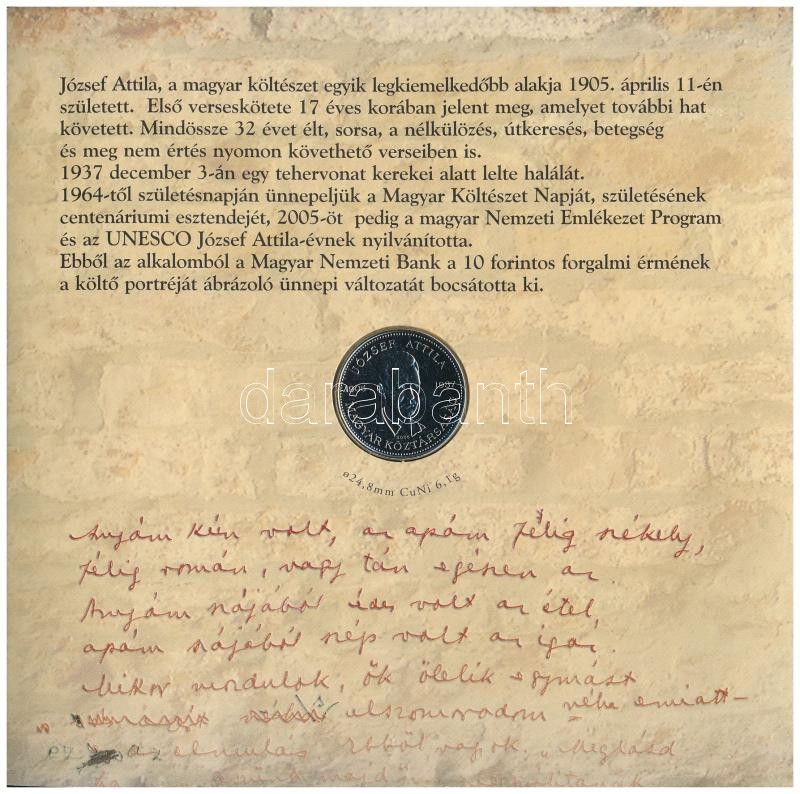 József Attila, a magyar költészet egyik legkiemelkedőbb alakja 1905. április 11-én
született. Első verseskötete 17 éves korában jelent meg, amelyet további hat
követett. Mindössze 32 évet élt, sorsa, a nélkülözés, útkeresés, betegség
és meg nem értés nyomon követhető verseiben is.
1937 december 3-án egy tehervonat kerekei alatt lelte halálát.
1964-től születésnapján ünnepeljük a Magyar Költészet Napját, születésének
centenáriumi esztendejét, 2005-öt pedig a magyar Nemzeti Emlékezet Program
és az UNESCO József Attila-évnek nyilvánította.
Ebből az alkalomból a Magyar Nemzeti Bank a 10 forintos forgalmi érmének
a költő portréját ábrázoló ünnepi változatát bocsátotta ki.
JÓZSEF ATTILA
1905 1937
2005
MAGYAR KÖZTÁRSASÁG
darabanth
ø24,8mm CuNi 6,1g
Anyám kún volt, az apám félig székely,
félig román, vagy tán egészen az.
Anyám szájából édes volt az étel,
apám szájából szép volt az igaz.
Mikor mozdulok, ők ölelik egymást
elszomorodom néha emiatt-
ez az elmulás. Ebből vagyok. "Meglásd
ha